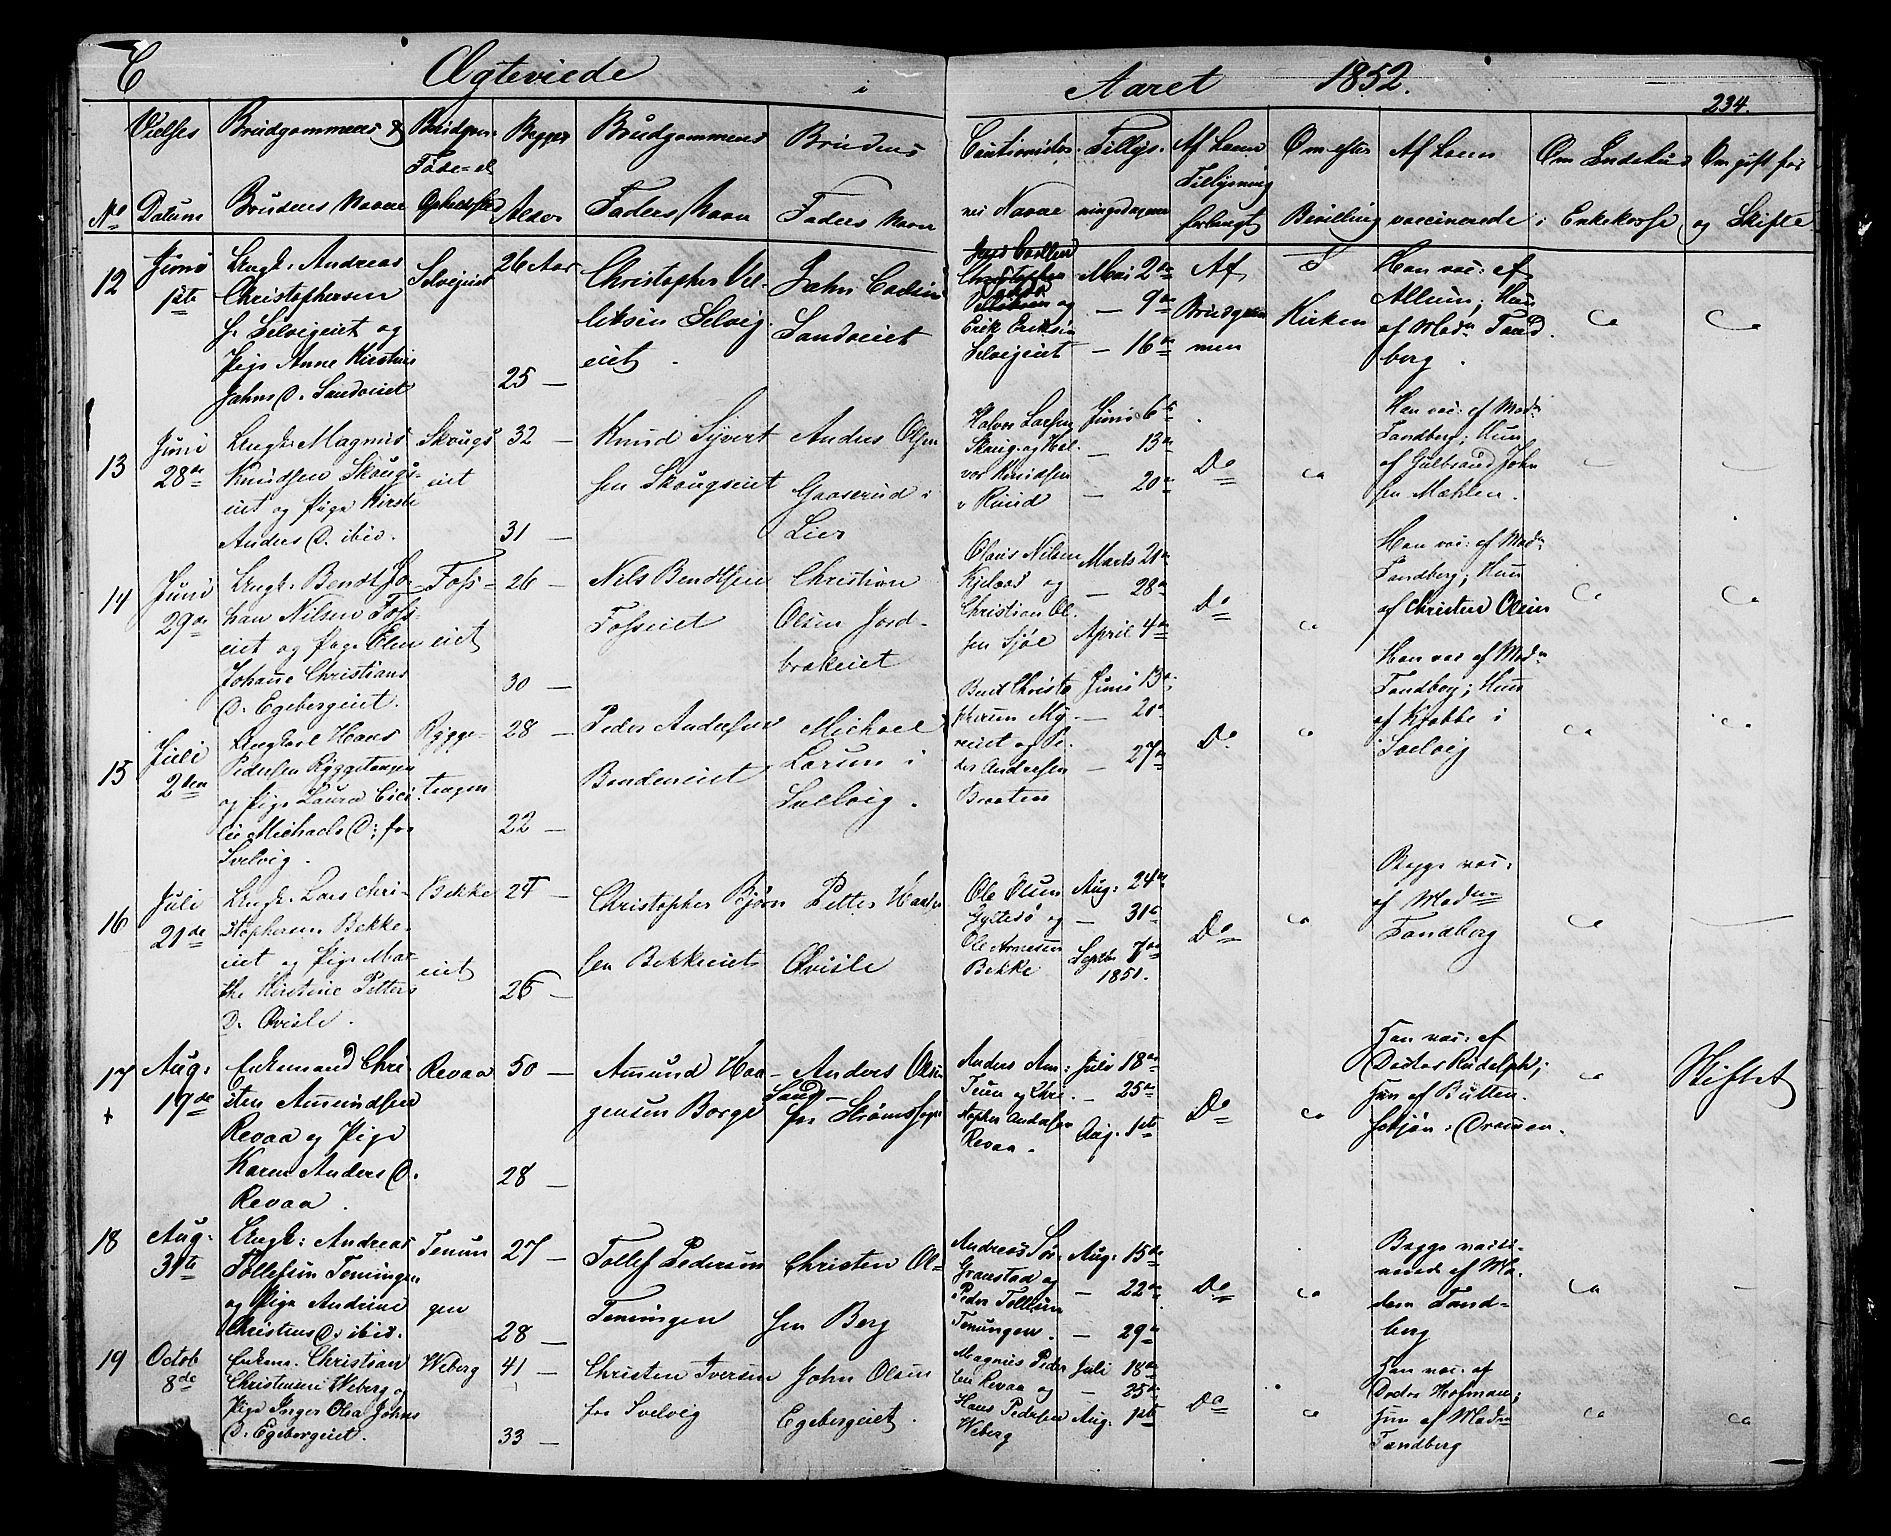 C Ægteviede i Aaret 1852.
234.
No
Vielses Datum
Brudgommens & Brudens Navne
Brudgom: Føde- el Opholdssted
Begges Alder
Brudgommens Faders Navn
Brudens Faders Navn
Cautionister- nes Navne
Tillys- ningsdagene
Af hvem Tillysning forlangt
Om efter Bevilling
Af hvem vaccinerede
Om Indskud i Enkekasse
Om gift før og Skifte
12
Juni
1ste
Ungk: Andreas
Christophersen
f. Selvigeiet og
Pige Anne Kirstine
Johns D. Sandveiet
Selvigeiet
26 Aar
25 —
Christopher
Selvig
eiet.
John
Sandveiet
Erik Eriksen
Selvigeiet
Mai 2den
— 9de
— 16de
Af
Brudgom
men
I
Kirken
Han vac: af
Allum; Hun
af Madn Tand
berg.
13
Juni
28de
Ungk: Magnus
Knudsen Skougs-
eiet og Pige Kirsti
Anders D. ibid.
Skougs
eiet
32 —
31 —
Knud Syvert
sen Skougseiet
Anders Olsen
Gaaserud i
Lier
Halvor Larsen
Skoug og Hal-
vor Knudsen
Juni 6te
— 13de
— 20de
Do
Han vac: af Madn
Tandberg; Hun
af Gulbrand John
sen Mæhlen.
14
Juni
29de
Ungk: Bendt Jo-
han Nilsen Foss-
eiet og Pige Elen
Johanne Christians
D. Egebergeiet.
Foss-
eiet
26 —
30 —
Nils Bendtsen
Fosseiet
Christian
Olsen Jord-
brakeiet
Olaus Nilsen
og
Christian Ol-
sen
Marts 21de
— 28de
April 4de
Do
Han vac: af Madn
Tandberg; Hun
af Christen Olsen
15
Juli
2den
Ungkarl Hans
Pedersen Ryggetangen
og Pige Laura Cici-
lie Michaels D: fra
Svelvig.
Rygge-
tangen
28 —
22 —
Peder Andersen
Bendeneiet
Michael
Larsen i
Svelvig.
Berit Christo
phersen
eiet og Pe-
der Andresen
Braaten
Juni 13de
— 20de
— 27de
Do
Han vac af Madn
Tandberg; Hun
af Krabbe i
Svelvig
16
Juli
21de
Ungk: Lars Chri-
stophersen Bekke-
eiet og Pige Mar-
the Kirstine Petters
D. Qvisle.
Bekke
eiet
24 —
26 —
Christopher Bjørn
sen Bekkeeiet
Petter Hansen
Qvisle
Ole Olsen
Gyltesø og
Ole Arnesen
Bekke
Aug: 24de
— 31te
Septbr 7de
1851.
Do
Begge vac:
af Madn
Tandberg
17
Aug:
17de
Enkemand Chri-
sten Amundsen
Revaa og Pige
Karen Anders D.
Revaa.
Revaa
50 —
28 —
Amund Haa-
gensen Borge
Anders Olsen
Sand
fra Strømssogn
Anders Am:
Teien og Chri-
stopher Andersen
Revaa.
Juli 18de
— 25de
Aug. 1ste
Do
Han vac: af
Doctor Rudolph;
Hun af Butten-
schøn i Dramen.
Skiftet
18
Aug.
31te
Ungk: Andreas
Tollefsen Tømingen
og Pige Andrine
Christens D. ibid.
27 —
28 —
Tollef Pedersen
Christen Ol-
sen Berg
Andreas Sør-
Graustad og
Peder Tollefsen
Aug: 15de
— 22de
— 29de
Do
Begge vacci-
nered af Ma-
dam Tand-
berg
19
Octob
8de
Enkem. Christian
Christensen Weberg og
Pige Inger Olea Johns
D. Egebergeiet.
Weberg
41 —
33 —
Christen Iversen
fra Svelvig
John Olsen
Egebergeiet.
Magnus Peder
sen Revaa og
Hans Pedersen
Weberg
Juli 18de
— 25de
Aug. 1ste
Do
Han vac: af
Doctor Hofman;
Hun af Madn
Tandberg